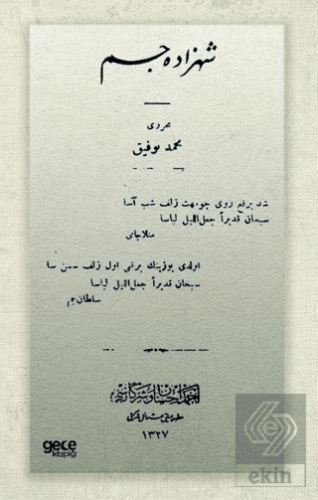 شهزاده جم
محرری
محمد توفیق
شد برقع روی چو مهت زلف شب آسا
سبحان قدیراً جعل اللیل لباسا
منلا جامی
اولدی یوزینك برقعی اول زلف سمن سا
سبحان قدیراً جعل اللیل لباسا
سلطان جم
احمد احسان و شرکاسی
مطبعه‌جیلق عثمانلی شرکتی
١٣٢٧
gece
kitaplığı
ekin